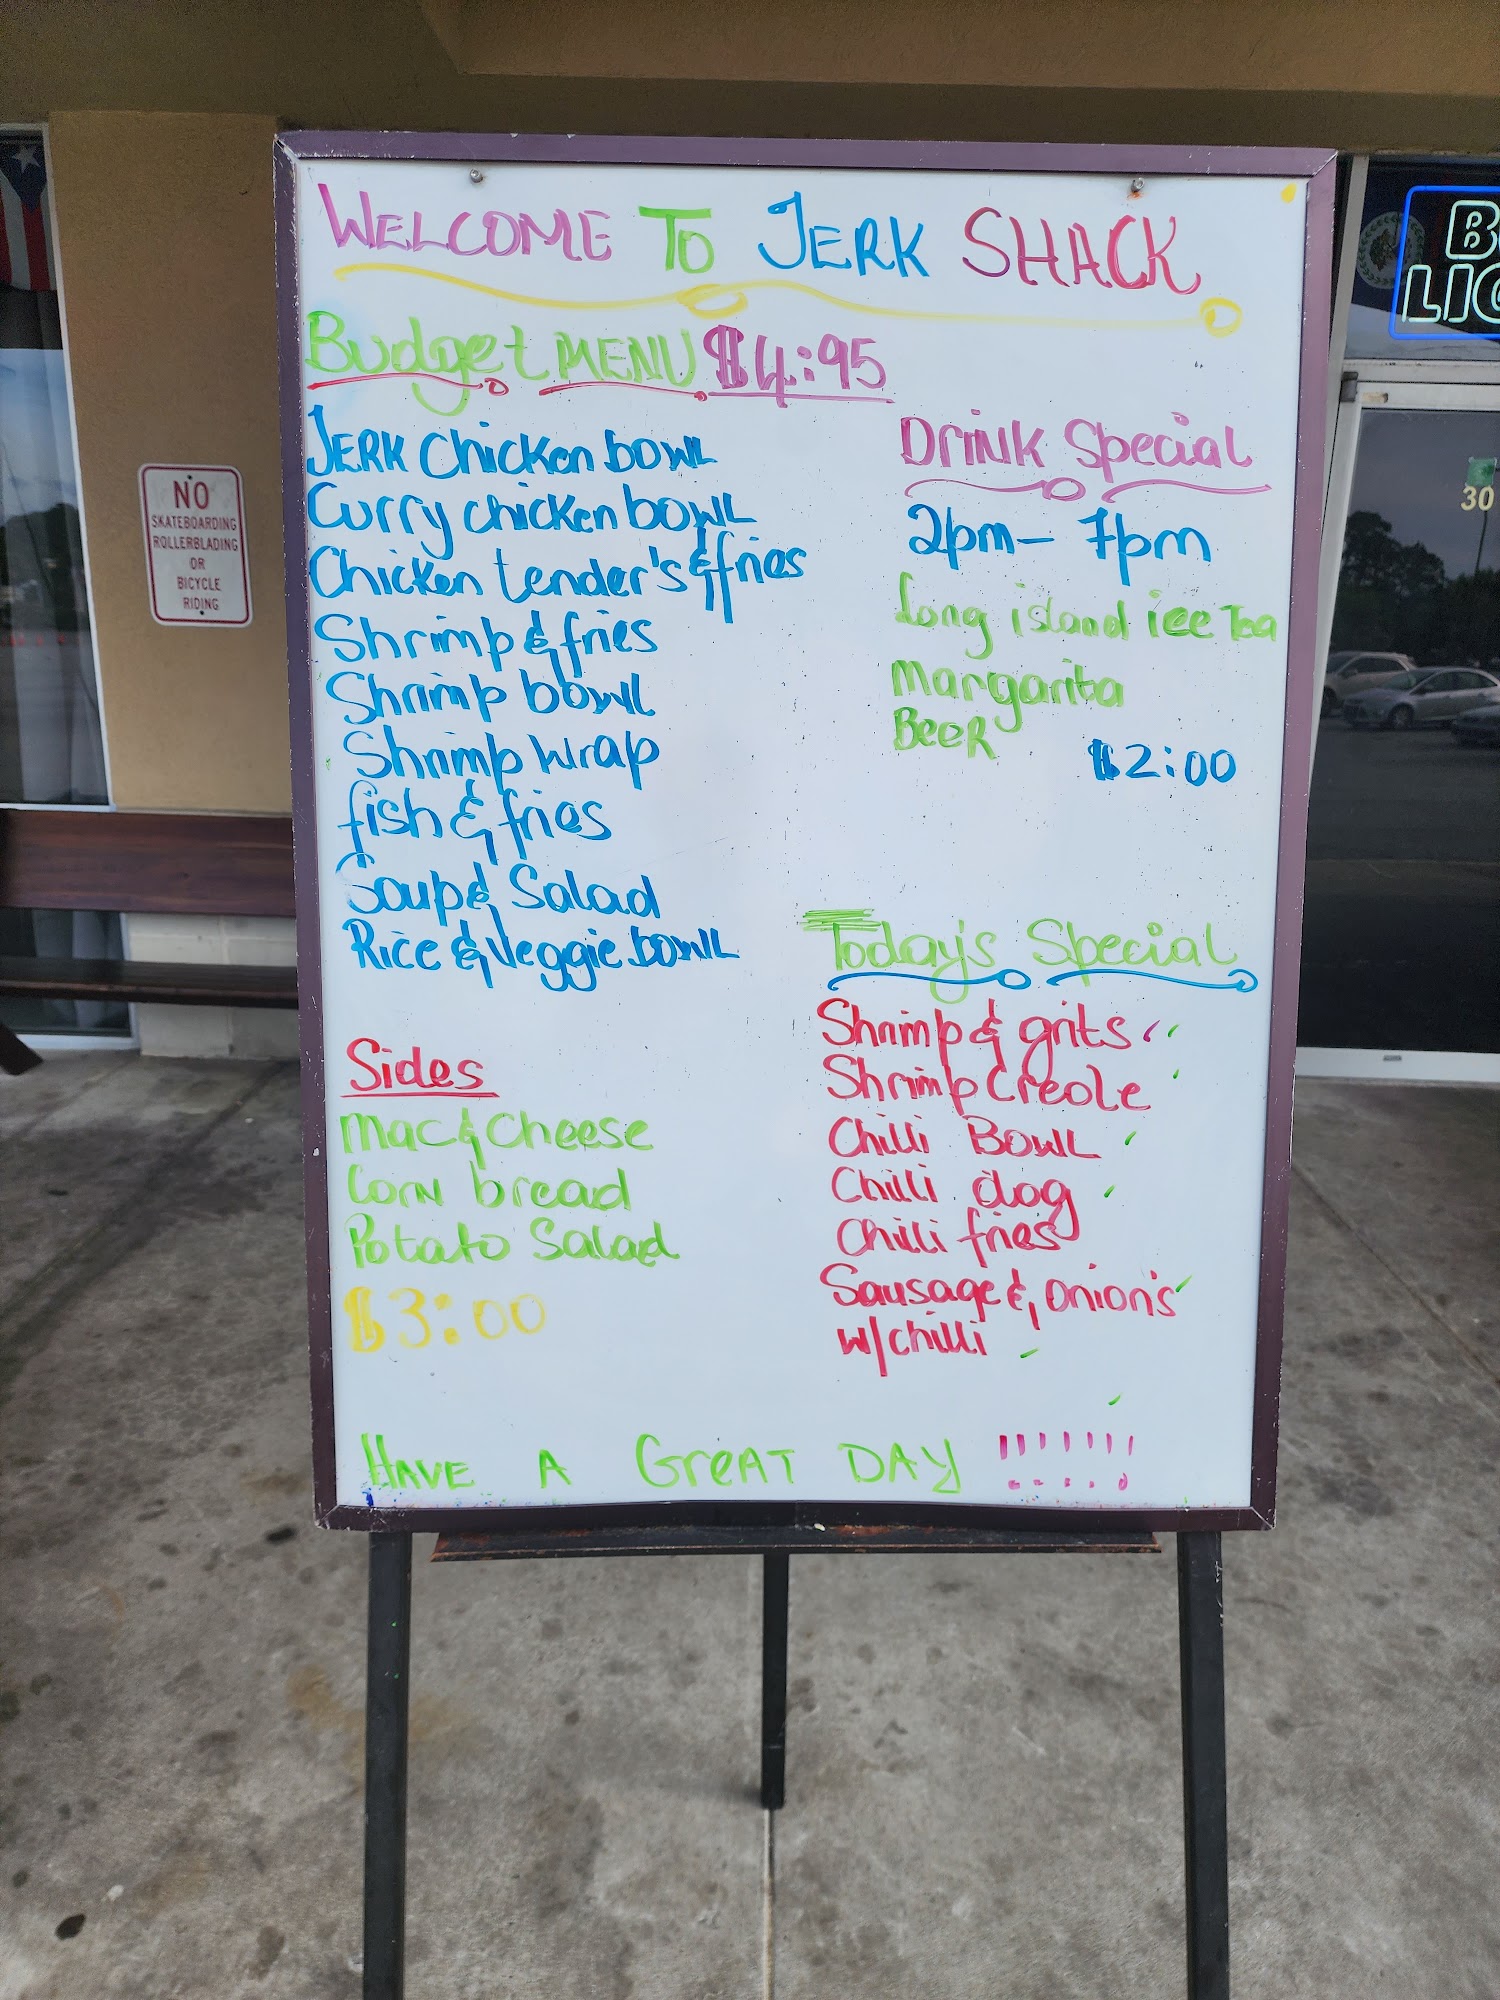 WELCOME TO JERK SHACK
Budget MENU $4:95
JERK Chicken bowL
Curry chicken bowL
Chicken tender's & fries
Shrimp & fries
Shrimp bowL
Shrimp wrap
fish & fries
Soup & Salad
Rice & Veggie bowL
Sides
Mac & Cheese
Corn bread
Potato Salad
$3:00
Drink Special
2pm - 7pm
Long island ice Tea
Margarita
BeeR
$2:00
Today's Special
Shrimp & grits
Shrimp Creole
Chilli BowL
Chilli dog
Chilli fries
Sausage & onion's
w/chilli
HAVE A GreAT DAY !!!!!!!
NO
SKATEBOARDING
ROLLERBLADING
OR
BICYCLE
RIDING
30